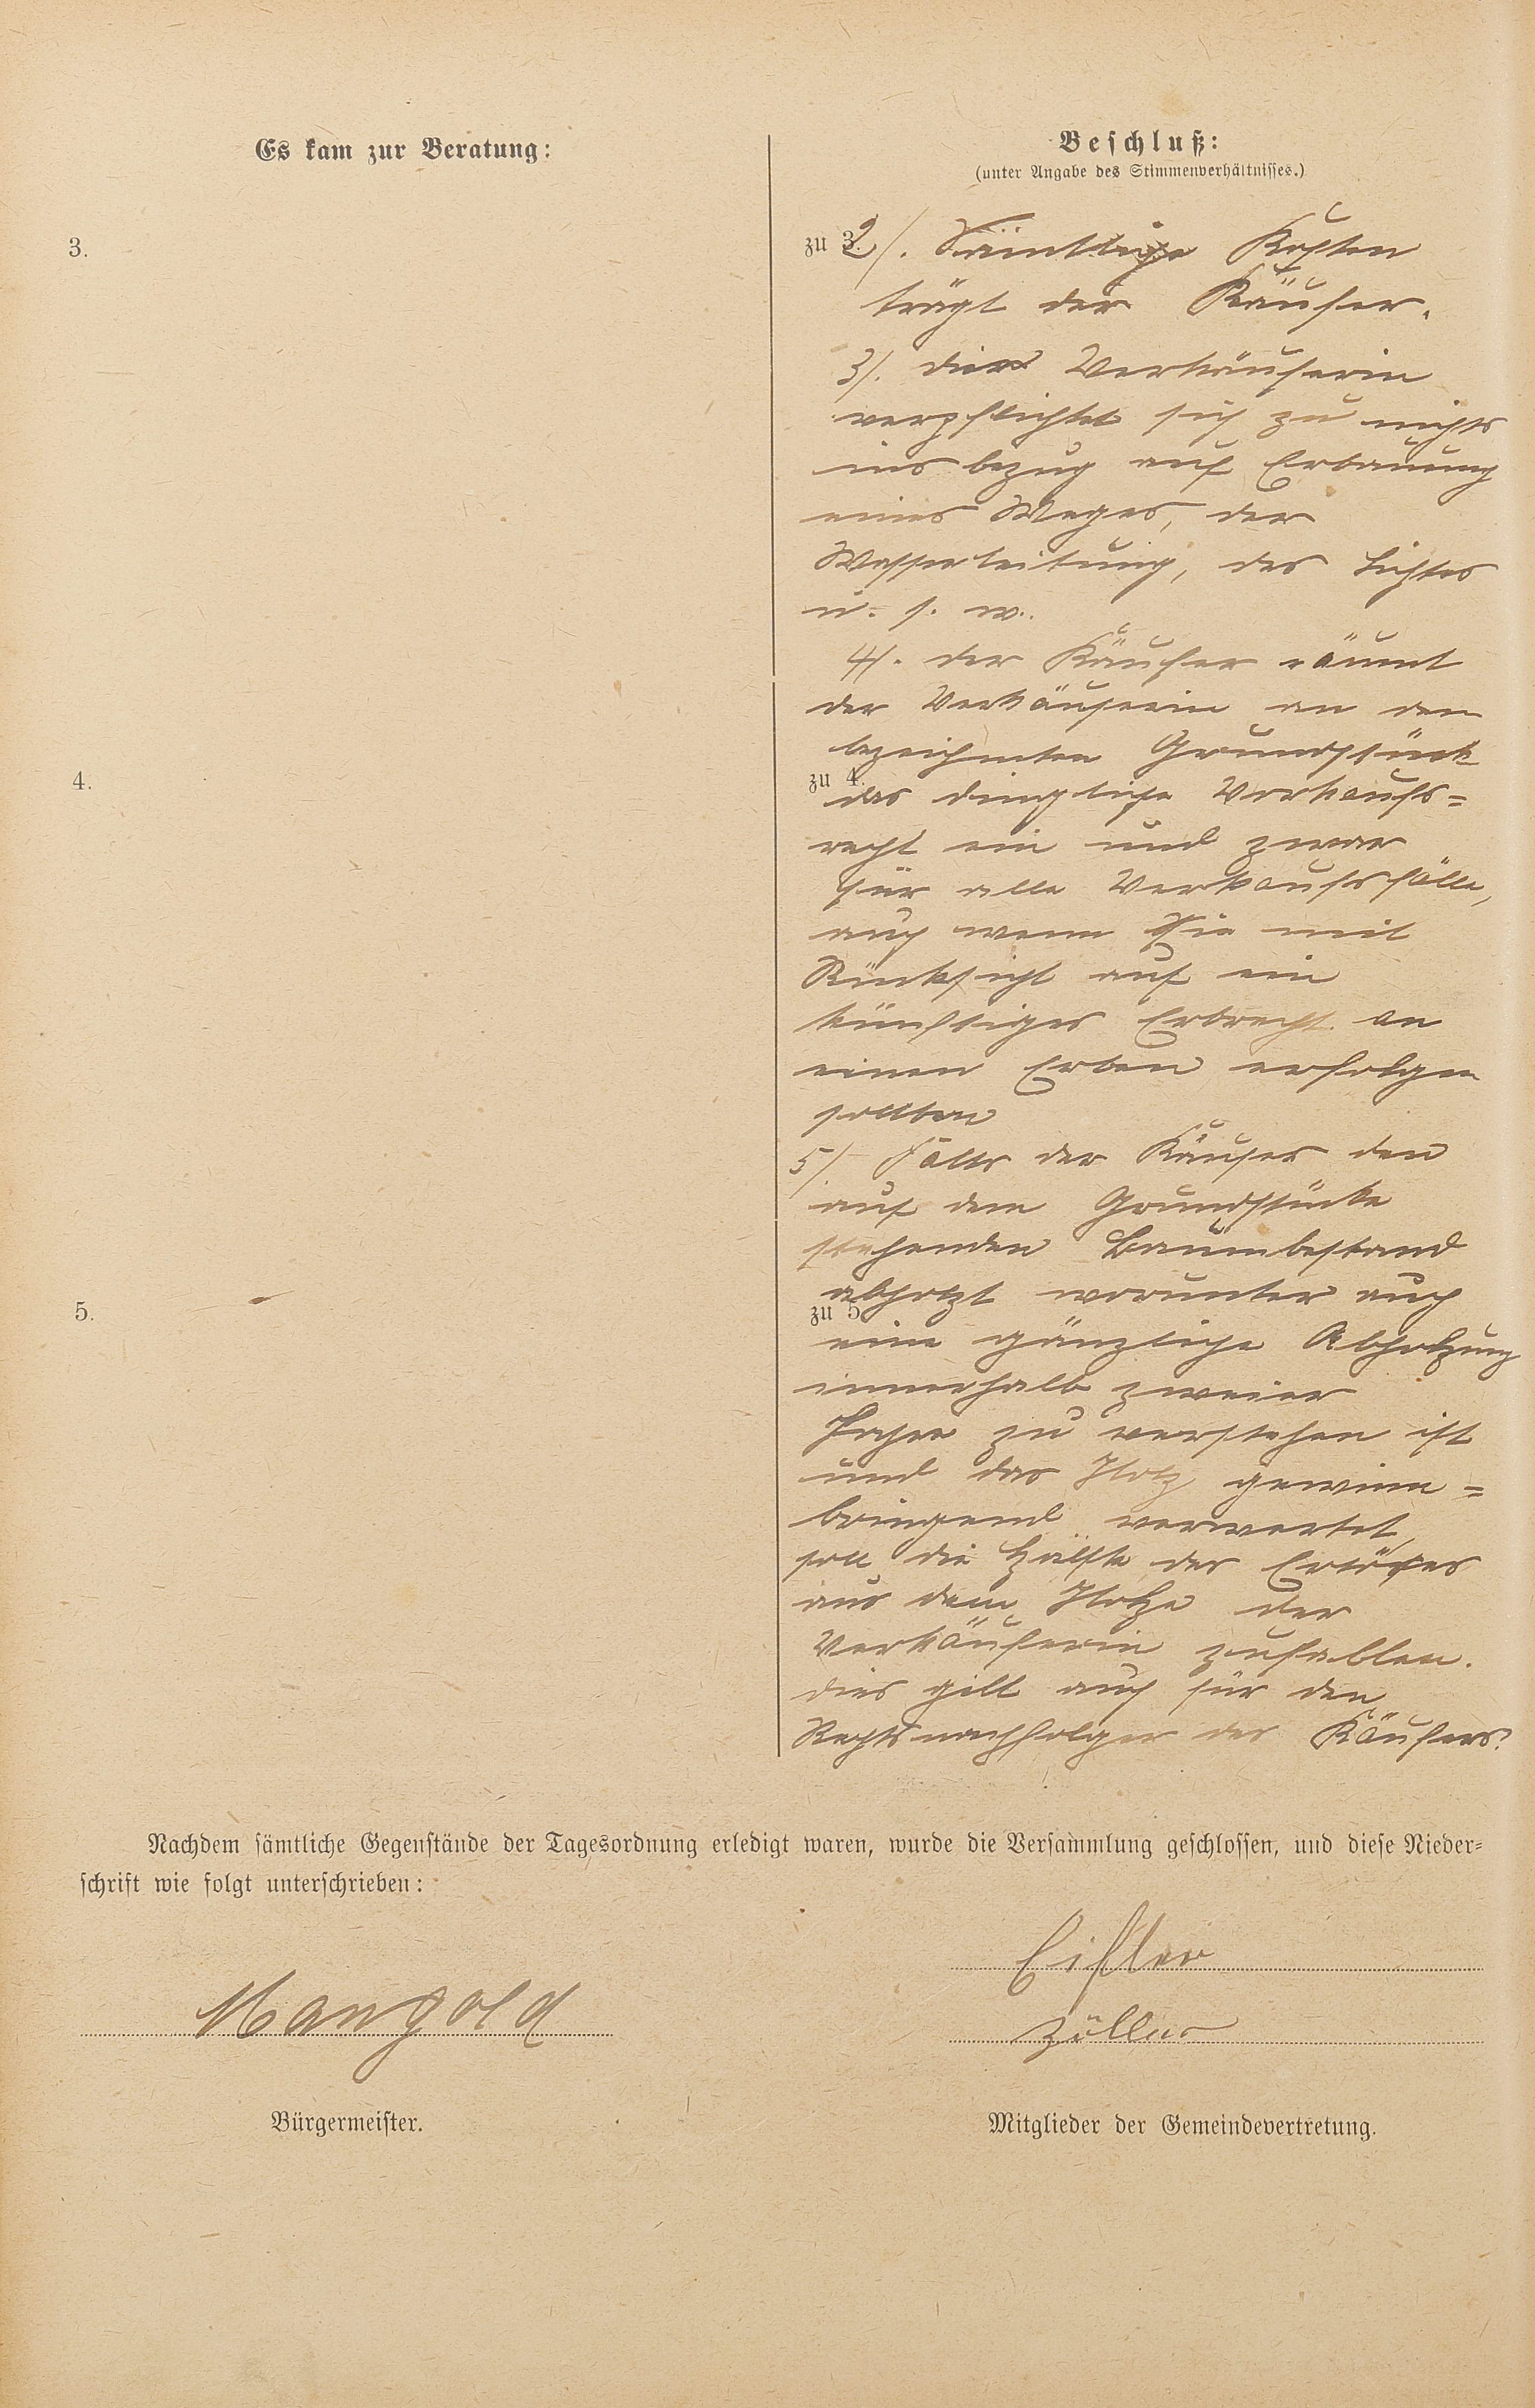 Es kam zur Beratung:
Beschluß:
(unter Angabe des Stimmenverhältnisses.)
3.
zu 3.
2/. Sämtliche Kosten
trägt der Käufer.
3/. die Verkäuferin
verpflichtet sich zu nichts
ins bezug auf Erbauung
eines Weges, der
Wasserleitung, des Lichtes
u. s. w.
4/. der Käufer räumt
der Verkäuferin an dem
bezeichneten Grundstück
4.
zu 4.
das dingliche Vorkaufs=
recht ein und zwar
für alle Verkaufsfälle,
auch wenn sie mit
Rücksicht auf ein
künftiges Erbrecht an
einen Erben erfolgen
sollten
5/. Falls der Käufer den
auf dem Grundstücke
stehenden Baumbestand
abholzt worunter auch
5.
zu 5
eine gänzliche Abholzung
innerhalb zweier
Jahre zu verstehen ist
und das Holz gewinn=
bringend verwertet,
soll die Hälfte des Erlöses
aus dem Holze der
Verkäuferin zufallen.
dies gilt auch für den
Rechtsnachfolger des Käufers.
Nachdem sämtliche Gegenstände der Tagesordnung erledigt waren, wurde die Versammlung geschlossen, und diese Nieder=
schrift wie folgt unterschrieben:
Eifler
Mangold
Zöller
Bürgermeister.
Mitglieder der Gemeindevertretung.